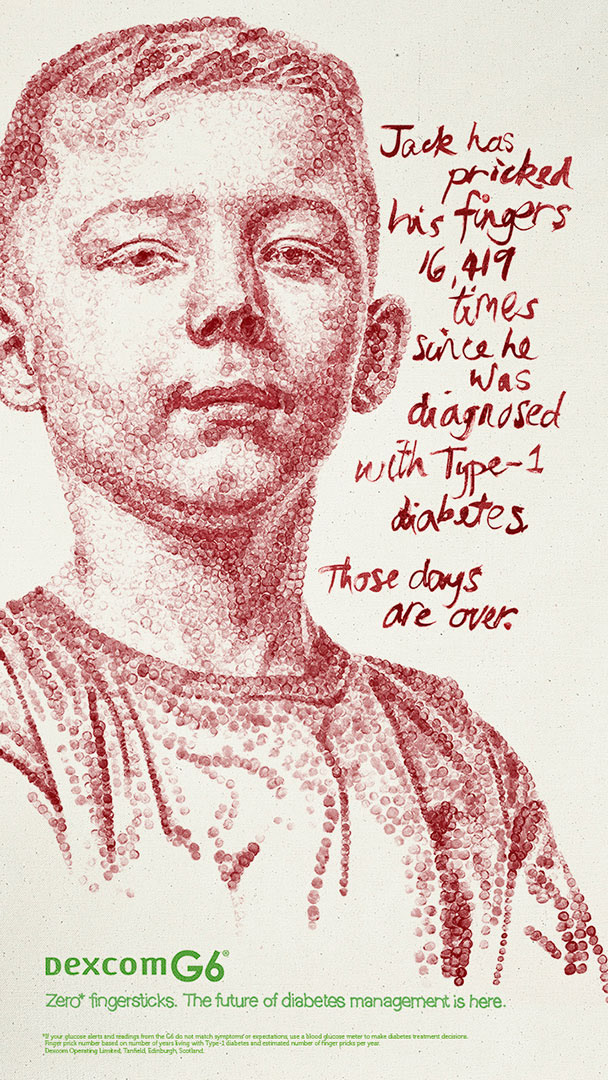 Jack has
pricked
his fingers
16,419
times
since he
was
diagnosed
with Type-1
diabetes.
Those days
are over.
Dexcom G6®
Zero* fingersticks. The future of diabetes management is here.
*If your glucose alerts and readings from the G6 do not match symptoms or expectations, use a blood glucose meter to make diabetes treatment decisions.
Finger prick number based on number of years living with Type-1 diabetes and estimated number of finger pricks per year.
Dexcom Operating Limited, Tanfield, Edinburgh, Scotland.